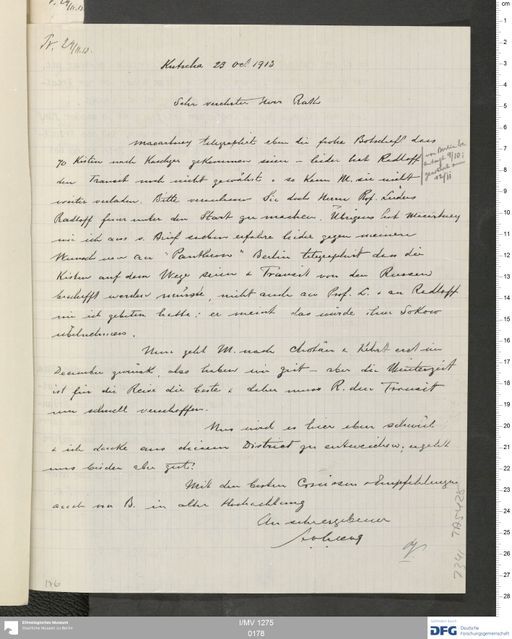 Kutscha 23 Oct 1913
Sehr verehrter Herr Rath
Macartney telegraphirt eben die frohe Botschaft dass
70 Kisten nach Kaschgar gekommen seien – leider hat Radloff
den Transit noch nicht gewährt & so kann M. sie nicht
weiter verladen. Bitte veranlassen Sie doch Herrn Prof. Lüders
Radloff Feuer unter den Start zu machen. Übrigens hat Macartney
wie ich aus s. Brief soeben erfahre leider gegen meinen
Wunsch nur an "Pantheon" Berlin telegraphirt das die
Kisten auf dem Wege seien & Transit von den Russen
beschafft werden müsste, nicht auch an Prof. L. & an Radloff
wie ich gebeten hatte: er meint das würde Herr Sokow
übernehmen.
Nun geht M. nach Chotän & kehrt erst im
December zurück, also haben wir Zeit – aber die Winterzeit
ist für die Reise die beste & daher muss R. den Transit
nun schnell verschaffen.
Nun wird es hier eben schwül
& ich denke aus diesem District zu entweichen; es geht
uns beiden aber gut!
Mit den besten Grüssen & Empfehlungen
auch von B. in alter Hochachtung
Ihr sehr ergebener
176
I/MV 1275
0178
Ethnologisches Museum
Staatliche Museen zu Berlin
DFG Deutsche
Forschungsgemeinschaft